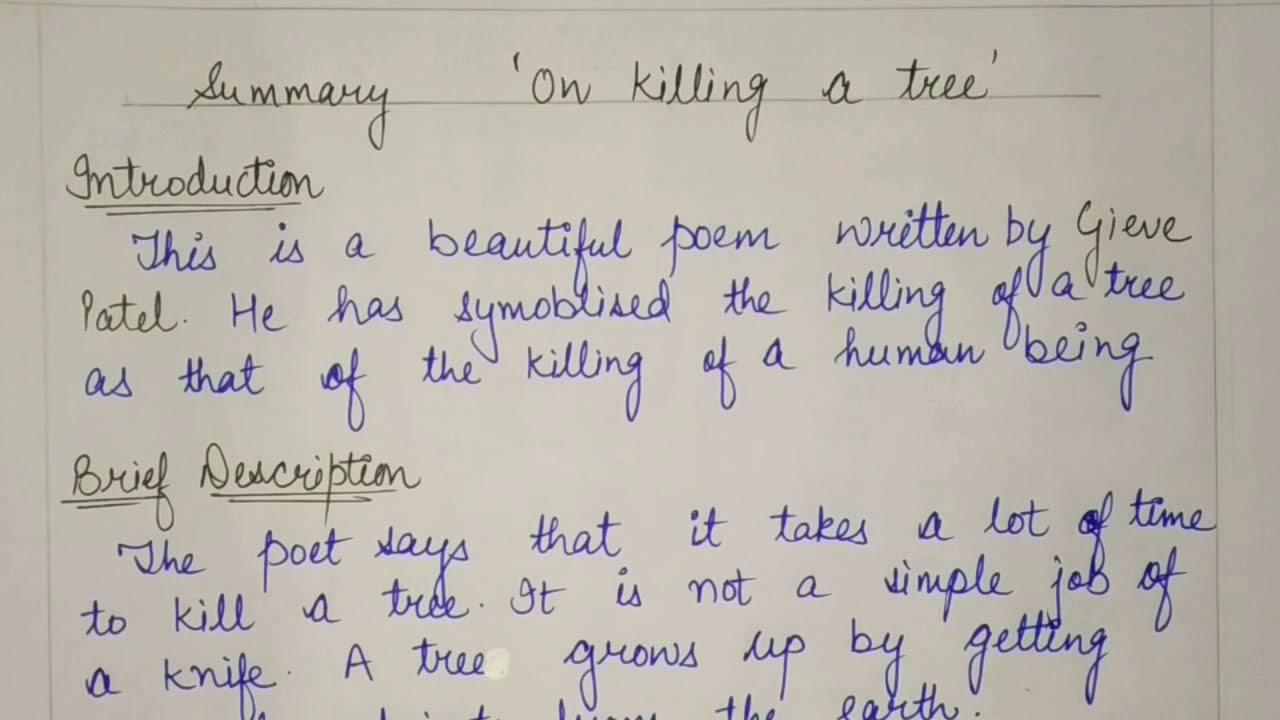 Summary 'On killing a tree'
Introduction
This is a beautiful poem written by Gieve
Patel. He has symoblised the killing of a tree
as that of the killing of a human being
Brief Description
The poet says that it takes a lot of time
to kill a tree. It is not a simple job of
a knife. A tree grows up by getting
the earth.